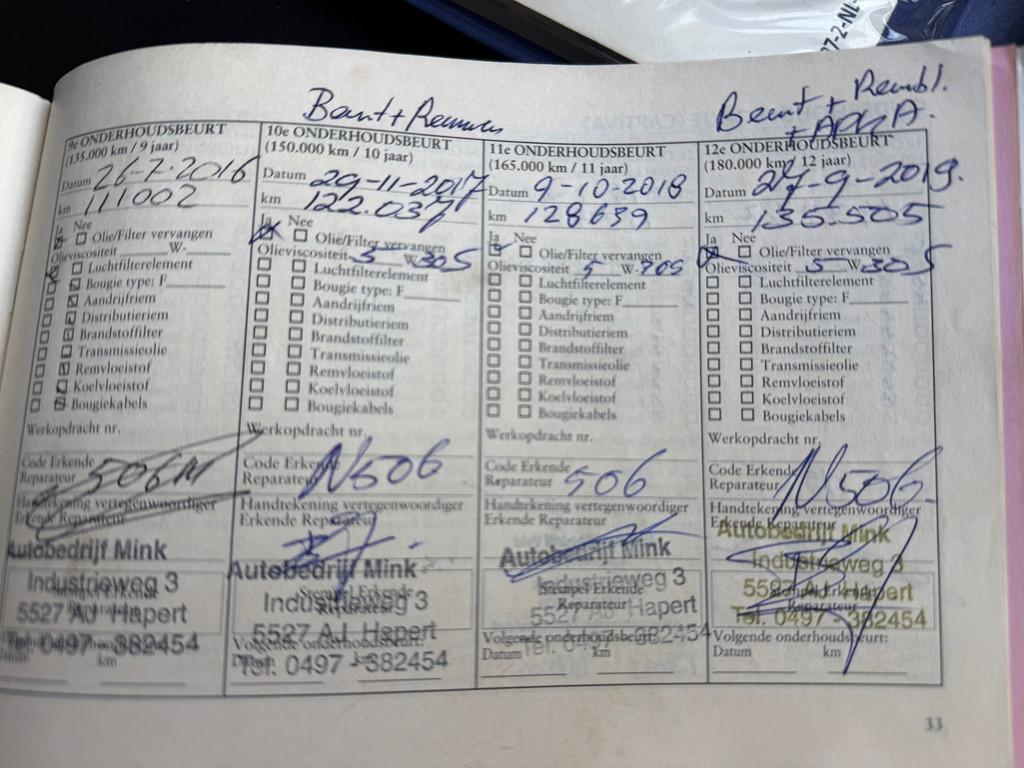 7-2-NL-
Beurt + Remmen
Beurt + Remvl.
+ APK A.
9e ONDERHOUDSBEURT
(135.000 km / 9 jaar)
Datum 26-7-2016
km 111002
Ja Nee
Olie/Filter vervangen
Olieviscositeit W-
Luchtfilterelement
Bougie type: F
Aandrijfriem
Distributieriem
Brandstoffilter
Transmissieolie
Remvloeistof
Koelvloeistof
Bougiekabels
Werkopdracht nr.
Code Erkende
Reparateur 506M
Handtekening vertegenwoordiger
Erkende Reparateur
Autobedrijf Mink
Industrieweg 3
Stempel Erkende
5527 AJ Hapert
Reparateur
Tel. 0497 - 382454
Datum km
10e ONDERHOUDSBEURT
(150.000 km / 10 jaar)
Datum 29-11-2017
km 122.037
Ja Nee
Olie/Filter vervangen
Olieviscositeit 5 W-305
Luchtfilterelement
Bougie type: F
Aandrijfriem
Distributieriem
Brandstoffilter
Transmissieolie
Remvloeistof
Koelvloeistof
Bougiekabels
Werkopdracht nr.
Code Erkende
Reparateur N506
Handtekening vertegenwoordiger
Erkende Reparateur
Autobedrijf Mink
Stempel Erkende
Industrieweg 3
Reparateur
5527 AJ Hapert
Volgende onderhoudsbeurt:
Tel. 0497 - 382454
Datum km
11e ONDERHOUDSBEURT
(165.000 km / 11 jaar)
Datum 9-10-2018
km 128639
Ja Nee
Olie/Filter vervangen
Olieviscositeit 5 W-705
Luchtfilterelement
Bougie type: F
Aandrijfriem
Distributieriem
Brandstoffilter
Transmissieolie
Remvloeistof
Koelvloeistof
Bougiekabels
Werkopdracht nr.
Code Erkende
Reparateur 506
Handtekening vertegenwoordiger
Erkende Reparateur
Autobedrijf Mink
Industrieweg 3
Stempel Erkende
5527 AJ Hapert
Reparateur
Volgende onderhoudsbeurt:
Tel. 0497 - 382454
Datum km
12e ONDERHOUDSBEURT
(180.000 km / 12 jaar)
Datum 27-9-2019.
km 135.505
Ja Nee
Olie/Filter vervangen
Olieviscositeit 5 W-305
Luchtfilterelement
Bougie type: F
Aandrijfriem
Distributieriem
Brandstoffilter
Transmissieolie
Remvloeistof
Koelvloeistof
Bougiekabels
Werkopdracht nr.
Code Erkende
Reparateur N506
Handtekening vertegenwoordiger
Erkende Reparateur
Autobedrijf Mink
Industrieweg 3
5527 AJ Hapert
Stempel Erkende
Reparateur
Tel. 0497 - 382454
Volgende onderhoudsbeurt:
Datum km
33